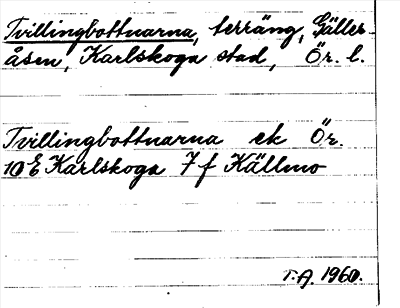 Tvillingbottnarna, terräng, Gälleråsen, Karlskoga stad, Ör. l.
Tvillingbottnarna ek Ör.
10E Karlskoga 7f Källmo
T.A. 1960.